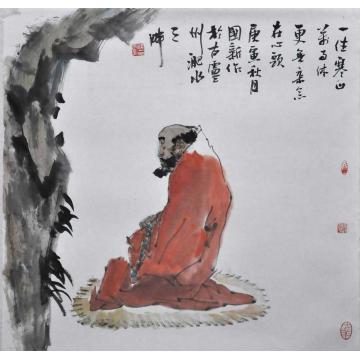 一住寒山
萬事休
更无杂念
在心頭
庚寅秋月
國新作
於古廬
州淝水
之畔